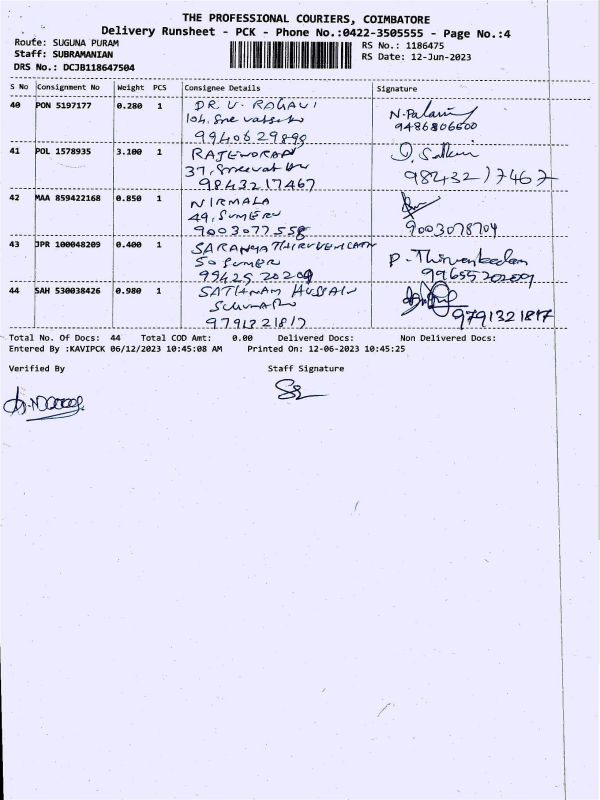 THE PROFESSIONAL COURIERS, COIMBATORE
Delivery Runsheet - PCK - Phone No.:0422-3505555 - Page No.:4
Route: SUGUNA PURAM
Staff: SUBRAMANIAN
DRS No.: DCJB118647504
RS No.: 1186475
RS Date: 12-Jun-2023
S No Consignment No Weight PCS Consignee Details Signature
40 PON 5197177 0.280 1 DR. V. RAGAVI
104, Sree
9940629899
N. Palani
9486806600
41 POL 1578935 3.100 1 RAJENDRAN
37,
9843217467
9843217467
42 MAA 859422168 0.850 1 NIRMALA
49, SUMERU
9003077558
9003078704
43 JPR 100048209 0.400 1 SARANYA THIRUVENKATH
50 SUMERU
9942520209
P. Thiruvenkadam
9965520209
44 SAH 530038426 0.980 1 SATHANAM HUSSAIN
9791321817
9791321817
Total No. Of Docs: 44 Total COD Amt: 0.00 Delivered Docs: Non Delivered Docs:
Entered By :KAVIPCK 06/12/2023 10:45:08 AM Printed On: 12-06-2023 10:45:25
Verified By Staff Signature